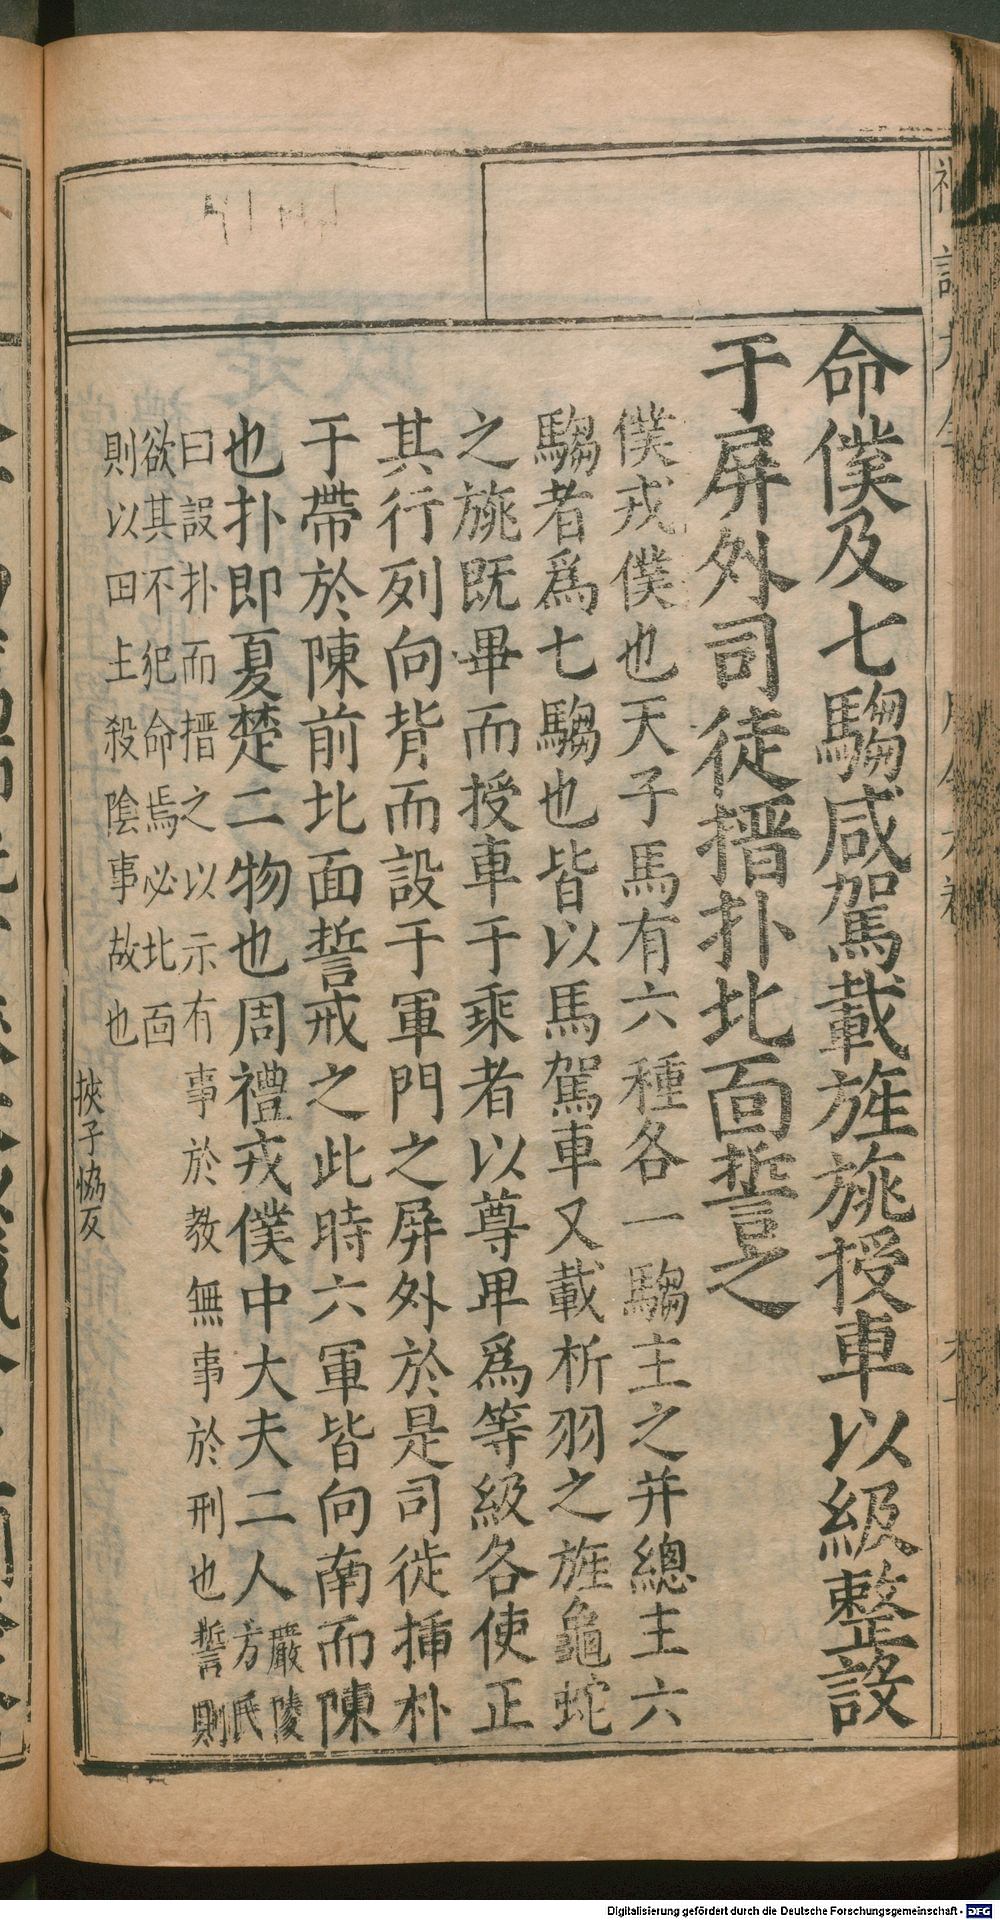 命僕及七騶咸駕載旌旐授車以級整設
于屏外司徒搢扑北面誓之
僕戎僕也天子馬有六種各一騶主之并總主六
騶者爲七騶也皆以馬駕車又載析羽之旌龜蛇
之旐既畢而授車于乘者以尊卑爲等級各使正
其行列向背而設于軍門之屏外於是司徒揷朴
于帶於陳前北面誓戒之此時六軍皆向南而陳
也扑即夏楚二物也周禮戎僕中大夫二人
嚴陵
方氏
曰設扑而搢之以示有事於教無事於刑也誓則
欲其不犯命焉必北面
則以囙上殺陰事故也
挾子恊反
Digitalisierung gefördert durch die Deutsche Forschungsgemeinschaft - DFG